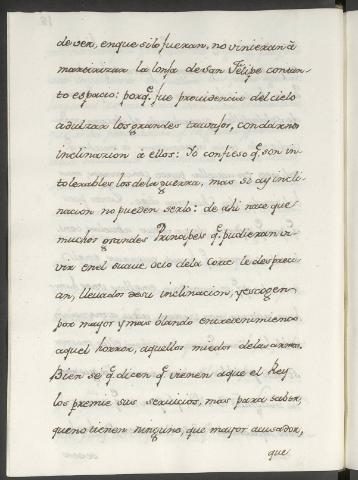 de ver, enque silo fueran, no vinieran â
martirizar la lonja de san Felipe contan-
to espacio: porq.e fue prouidencia del cielo
adulzar los grandes trauajos, con darnos
inclinazion â ellos: Yo confieso q.e son in-
tolerables los dela guerra, mas si ay incli-
nacion no pueden serlo: de ahi nace que
muchos grandes Principes q.e pudieran vi-
vir enel suaue ocio dela Corte le despreci-
an, lleuados desu inclinacion, y escogen
por mayor y mas blando entretenimiento
aquel horror, aquellos miedos delas armas.
Bien sé q.e dicen q.e vienen aque el Rey
los premie sus seruicios, mas para saber,
queno tienen ninguno, que mayor auisador,
que